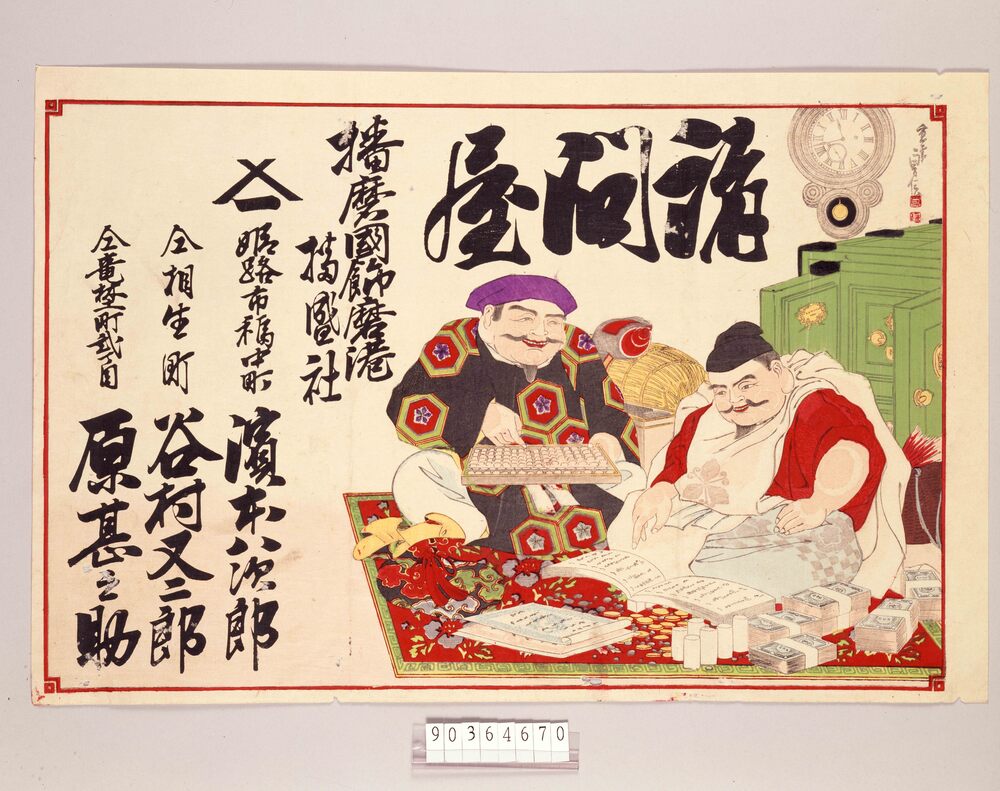 諸問屋
播磨國飾磨港
播盛社
姫路市福中町 濱本八次郎
仝相生町 谷村又二郎
仝竜埜町弐丁目 原甚之助
貞信
90364670